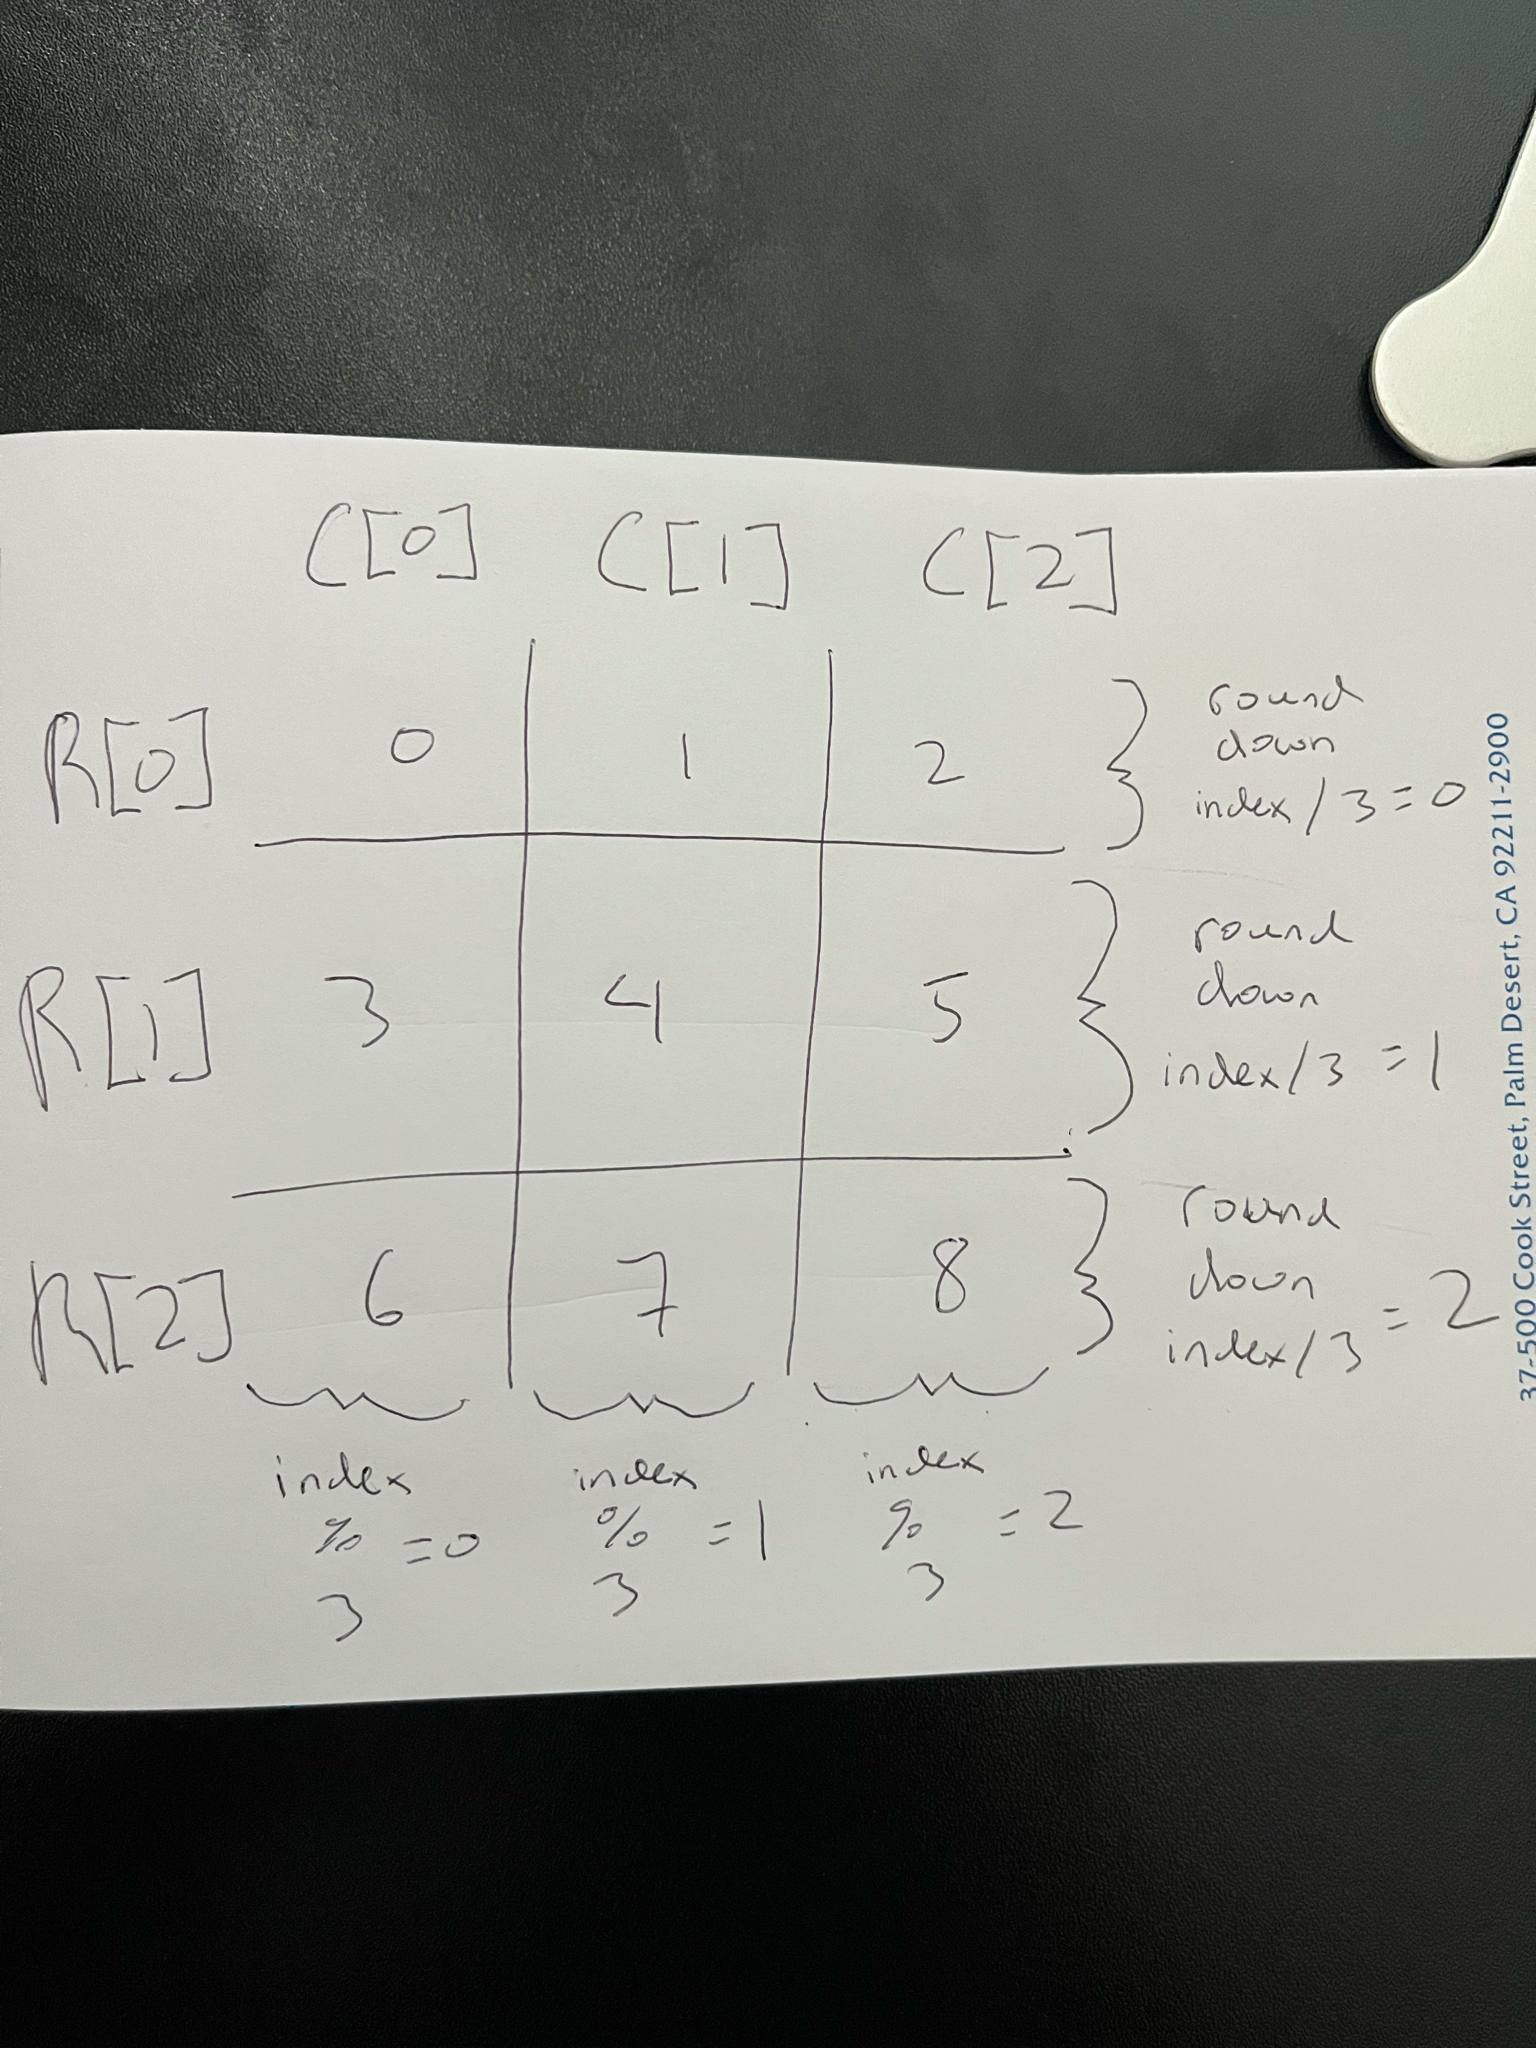 C[0] C[1] C[2]
R[0] 0 1 2 round
down
index / 3 = 0
R[1] 3 4 5 round
down
index / 3 = 1
R[2] 6 7 8 round
down
index / 3 = 2
index index index
% = 0 % = 1 % = 2
3 3 3
37-500 Cook Street, Palm Desert, CA 92211-2900